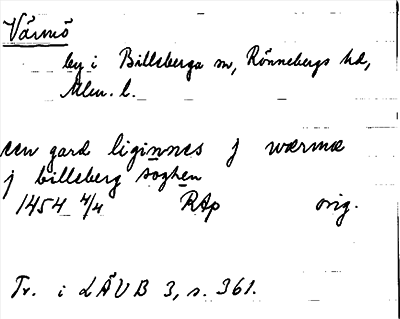 Värmö
by i Billeberga sn, Rönnebergs hd,
Mlm. l.
een gard liginnes j wærmæ
j billeberg soghen
1454 4/4 RAp orig.
Tr. i LÄUB 3, s. 361.